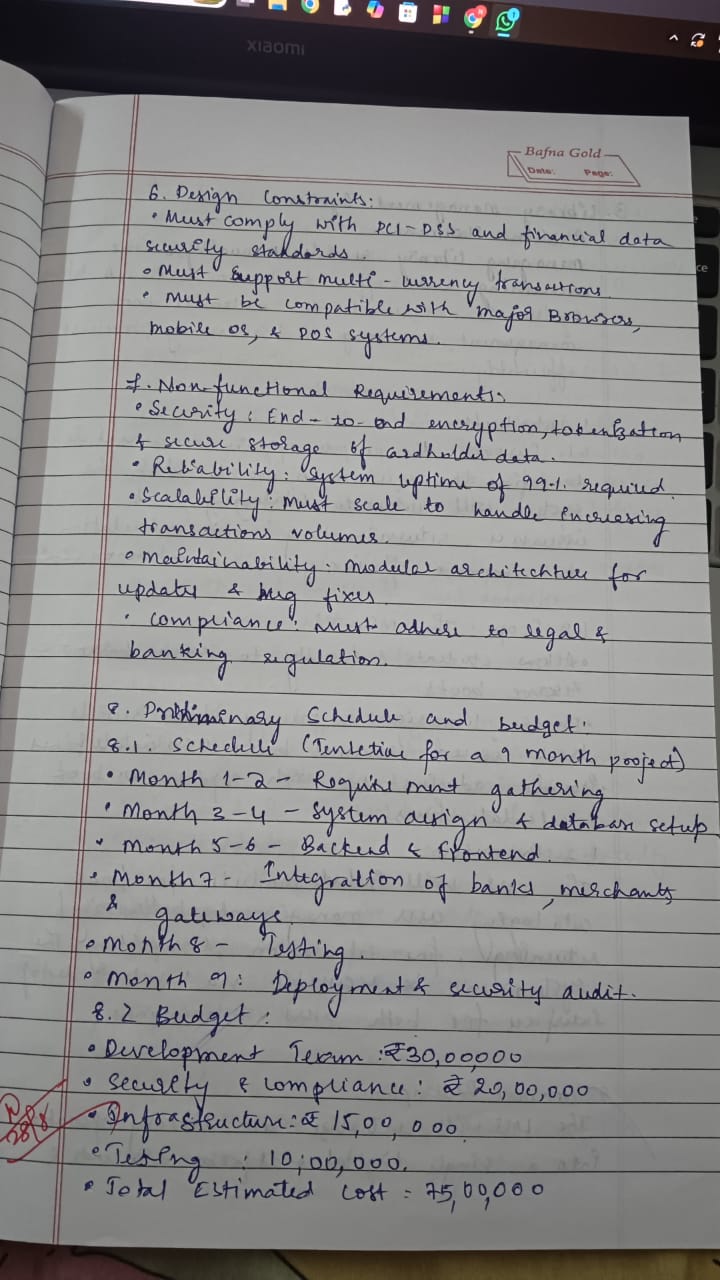 xiaomi
Bafna Gold
Date: Page:
6. Design Constraints:
• Must comply with PCI-DSS and financial data
security standards.
• Must support multi-currency transactions.
• Must be compatible with major Browsers,
mobile OS, & POS systems.
7. Non-functional Requirements:
• Security: End-to-end encryption, tokenization
& secure storage of cardholder data.
• Reliability: System uptime of 99.1. required.
• Scalability: Must scale to handle increasing
transactions volumes.
• Maintainability: Modular architechture for
updates & bug fixes.
• Compliance: Must adhere to legal &
banking regulation.
8. Preliminary Schedule and budget:
8.1. Schedule (Tentetive for a 9 month project)
• Month 1-2 - Requirement gathering
• Month 3-4 - System design & database setup
• Month 5-6 - Backend & frontend.
• Month 7 - Integration of banks, merchants
& gateways
• Month 8 - Testing.
• Month 9: Deployment & security audit.
8.2 Budget:
• Development Team: ₹30,00,000
• Security & compliance: ₹ 20,00,000
• Infrastructure: ₹ 15,00,000
• Testing : 10,00,000.
• Total Estimated cost = 75,00,000